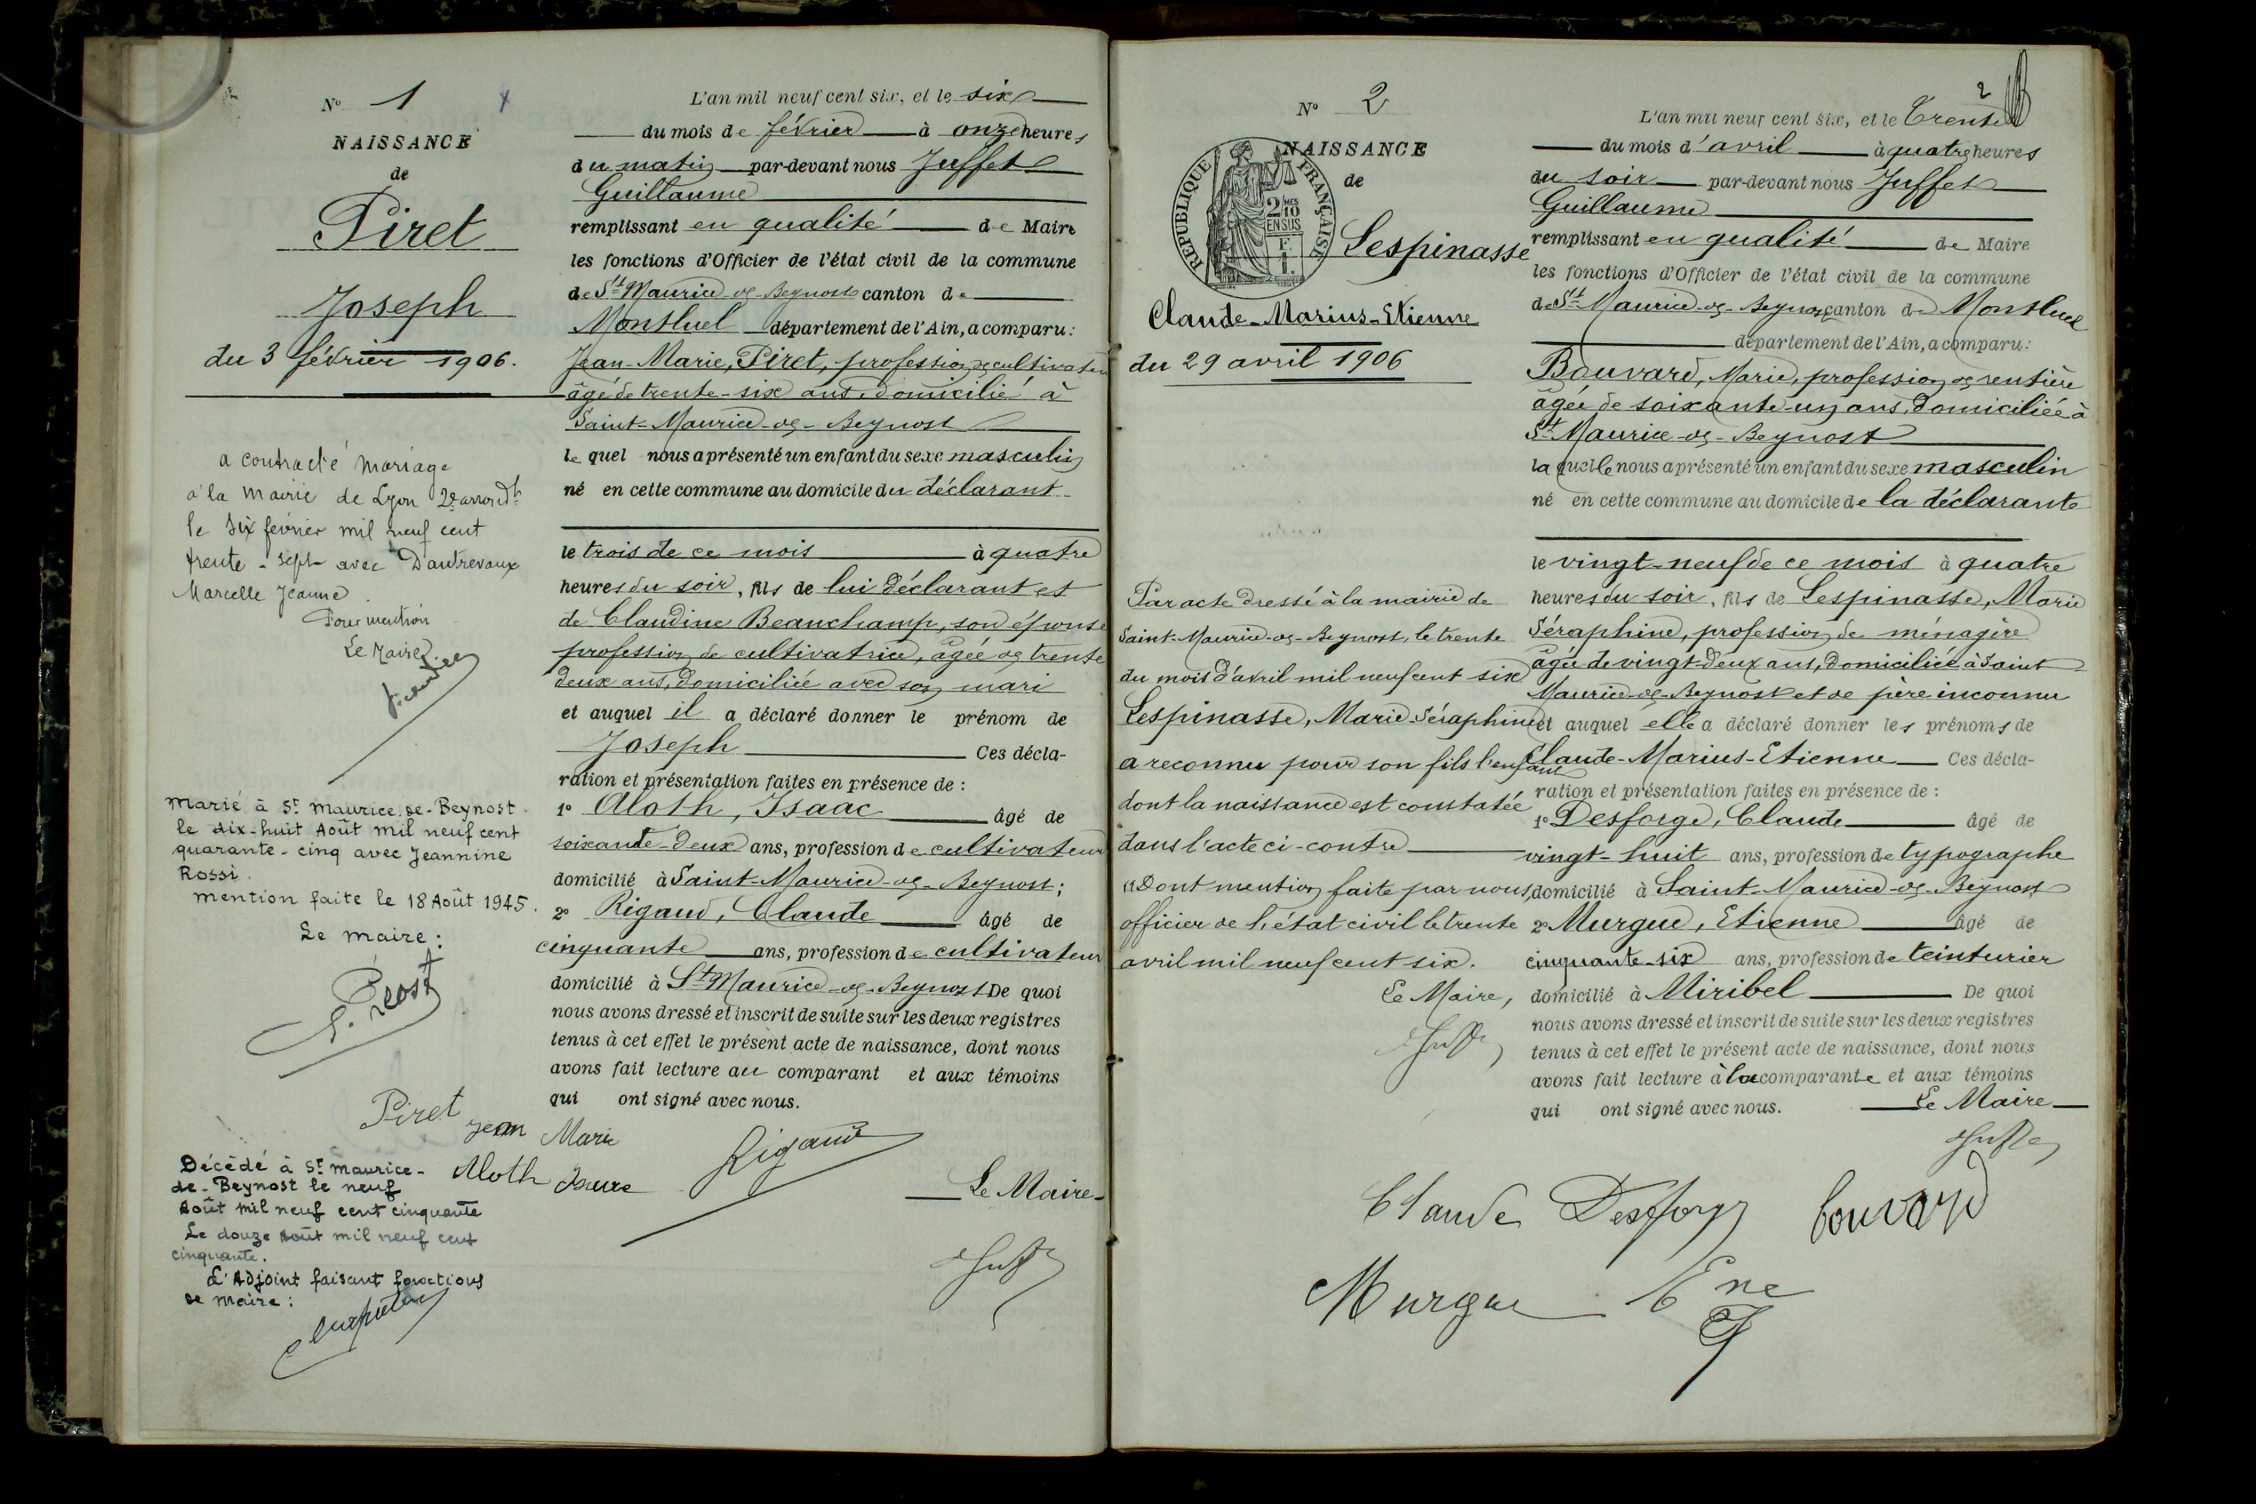 N° 1
NAISSANCE
de
Piret
Joseph
du 3 février 1906.
a contracté mariage
à la mairie de Lyon 2e arrondt
le six février mil neuf cent
trente-sept avec Dautrevaux
Marcelle Jeanne
Pour mention
Le Maire
Marié à St Maurice-de-Beynost
le dix-huit Août mil neuf cent
quarante-cinq avec Jeannine
Rossi.
mention faite le 18 Août 1945.
Le maire :
Décédé à St Maurice-
de-Beynost le neuf
Août mil neuf cent cinquante
Le douze Août mil neuf cent
cinquante.
L'Adjoint faisant fonctions
de maire :
L'an mil neuf cent six, et le six
du mois de février à onze heures
du matin par-devant nous Juffet
Guillaume
remplissant en qualité de Maire
les fonctions d'Officier de l'état civil de la commune
de St Maurice-de-Beynost canton de
Montluel département de l'Ain, a comparu :
Jean-Marie, Piret, profession de cultivateur
âgé de trente-six ans, domicilié à
Saint-Maurice-de-Beynost
le quel nous a présenté un enfant du sexe masculin
né en cette commune au domicile du déclarant
le trois de ce mois à quatre
heures du soir, fils de lui déclarant et
de Claudine Beauchamp, son épouse
profession de cultivatrice, âgée de trente
deux ans, domiciliée avec son mari
et auquel il a déclaré donner le prénom de
Joseph Ces décla-
ration et présentation faites en présence de :
1° Aloth, Isaac âgé de
soixante-deux ans, profession de cultivateur
domicilié à Saint-Maurice-de-Beynost ;
2° Rigaud, Claude âgé de
cinquante ans, profession de cultivateur
domicilié à St Maurice-de-Beynost De quoi
nous avons dressé et inscrit de suite sur les deux registres
tenus à cet effet le présent acte de naissance, dont nous
avons fait lecture au comparant et aux témoins
qui ont signé avec nous.
Piret Jean Marie
Aloth
Rigaud
Le Maire
N° 2
NAISSANCE
de
REPUBLIQUE FRANÇAISE
2 MES
10
EN SUS
Lespinasse
Claude-Marius-Etienne
du 29 avril 1906
Par acte dressé à la mairie de
Saint-Maurice-de-Beynost, le trente
du mois d'avril mil neuf cent six
Lespinasse, Marie-Séraphine
a reconnu pour son fils l'enfant
dont la naissance est constatée
dans l'acte ci-contre
Dont mention faite par nous,
officier de l'état civil le trente
avril mil neuf cent six.
Le Maire,
2
L'an mil neuf cent six, et le trente
du mois d'avril à quatre heures
du soir par-devant nous Juffet
Guillaume
remplissant en qualité de Maire
les fonctions d'Officier de l'état civil de la commune
de St Maurice-de-Beynost canton de Montluel
département de l'Ain, a comparu :
Bouvard, Marie, profession de rentière
âgée de soixante-un ans, domiciliée à
St Maurice-de-Beynost
la quelle nous a présenté un enfant du sexe masculin
né en cette commune au domicile de la déclarante
le vingt-neuf de ce mois à quatre
heures du soir, fils de Lespinasse, Marie
Séraphine, profession de ménagère
âgée de vingt-deux ans, domiciliée à Saint
Maurice-de-Beynost et de père inconnu
et auquel elle a déclaré donner les prénoms de
Claude-Marius-Etienne Ces décla-
ration et présentation faites en présence de :
1° Desforge, Claude âgé de
vingt-huit ans, profession de typographe
domicilié à Saint-Maurice-de-Beynost
2° Murgue, Etienne âgé de
cinquante-six ans, profession de teinturier
domicilié à Miribel De quoi
nous avons dressé et inscrit de suite sur les deux registres
tenus à cet effet le présent acte de naissance, dont nous
avons fait lecture à la comparante et aux témoins
qui ont signé avec nous. Le Maire
Claude Desforge bouvard
Murgue Ene